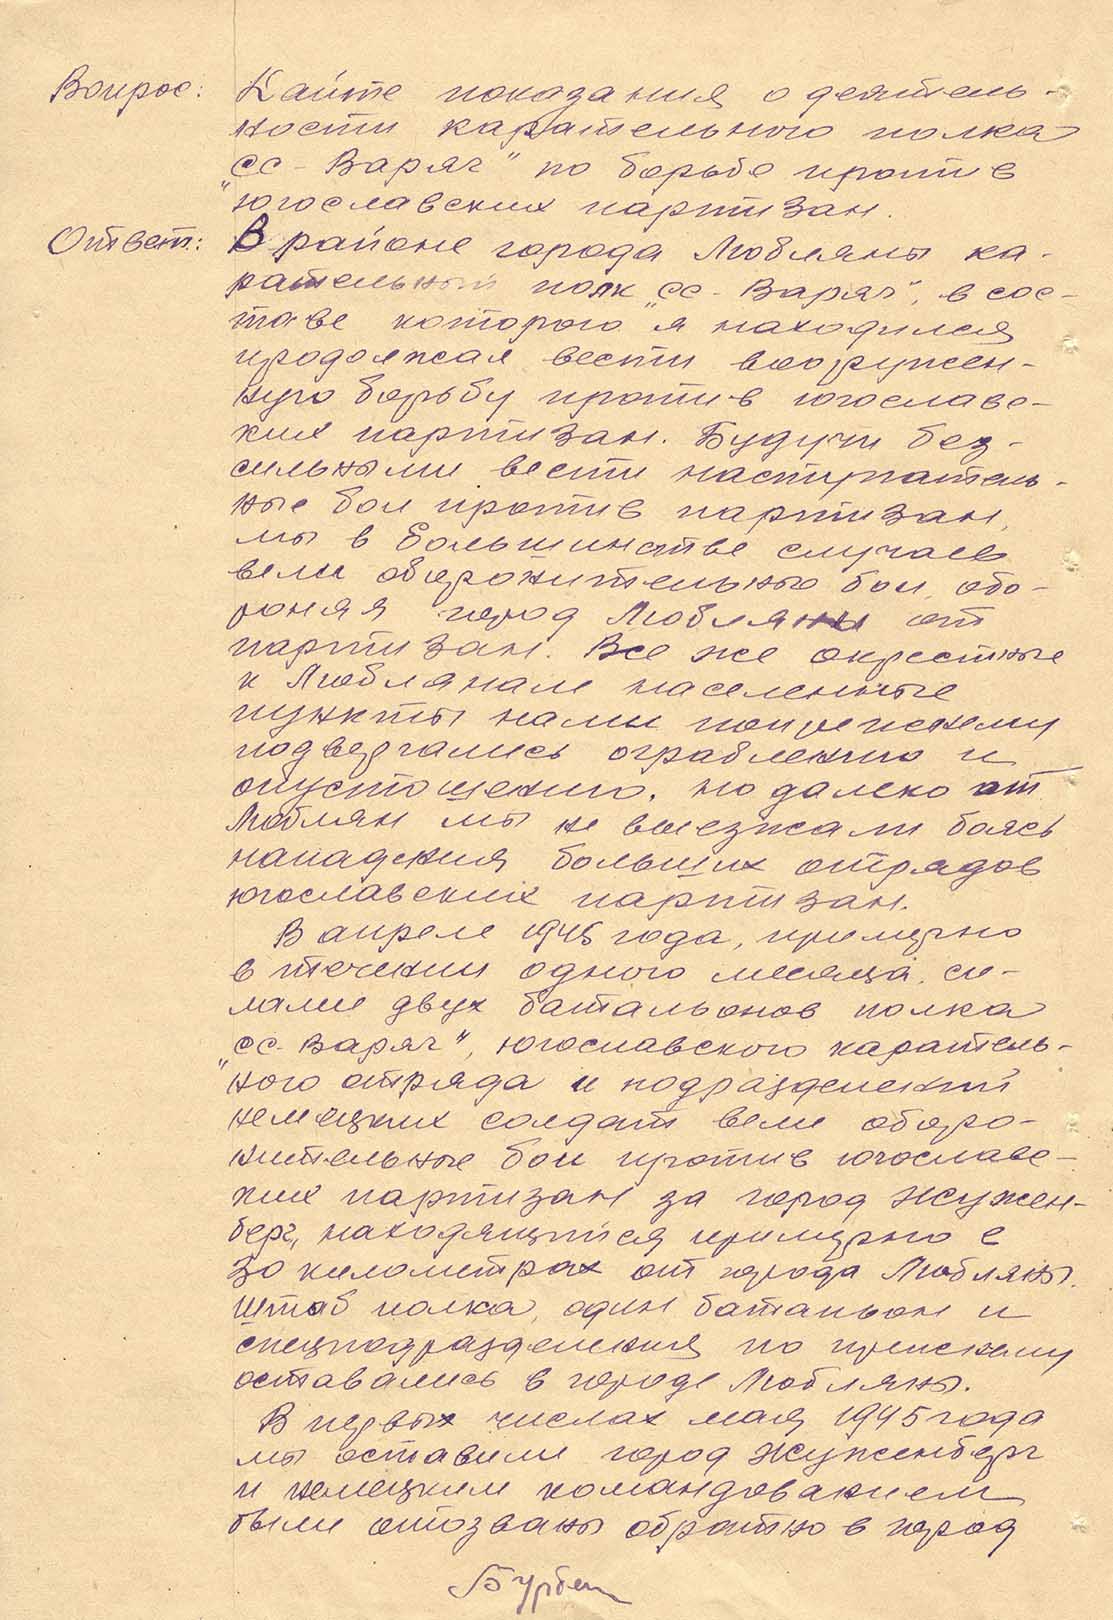 Вопрос: Дайте показания о деятель-
ности карательного полка
„СС-Варяг" по борьбе против
югославских партизан.
Ответ: В районе города Любляны ка-
рательный полк „СС-Варяг", в сос-
таве которого я находился
продолжал вести вооружен-
ную борьбу против югославс-
ких партизан. Будучи без-
сильными вести наступатель-
ные бои против партизан,
мы в большинстве случаев
вели оборонительные бои, обо-
роняя город Любляны от
партизан. Все же окрестные
к Люблянам населенные
пункты нами попрежнему
подвергались ограблению и
опустошению. Но далеко от
Люблян мы не выезжали боясь
нападения больших отрядов
югославских партизан.
В апреле 1945 года, примерно
в течении одного месяца, си-
лами двух батальонов полка
„СС-Варяг", югославского каратель-
ного отряда и подразделений
немецких солдат вели оборо-
нительные бои против югославс-
ких партизан за город Жужен-
берг, находящийся примерно в
30 километрах от города Любляны.
Штаб полка, один батальон и
спецподразделения по прежнему
оставались в городе Любляны.
В первых числах мая 1945 года
мы оставили город Жуженберг
и немецким командованием
были отозваны обратно в город